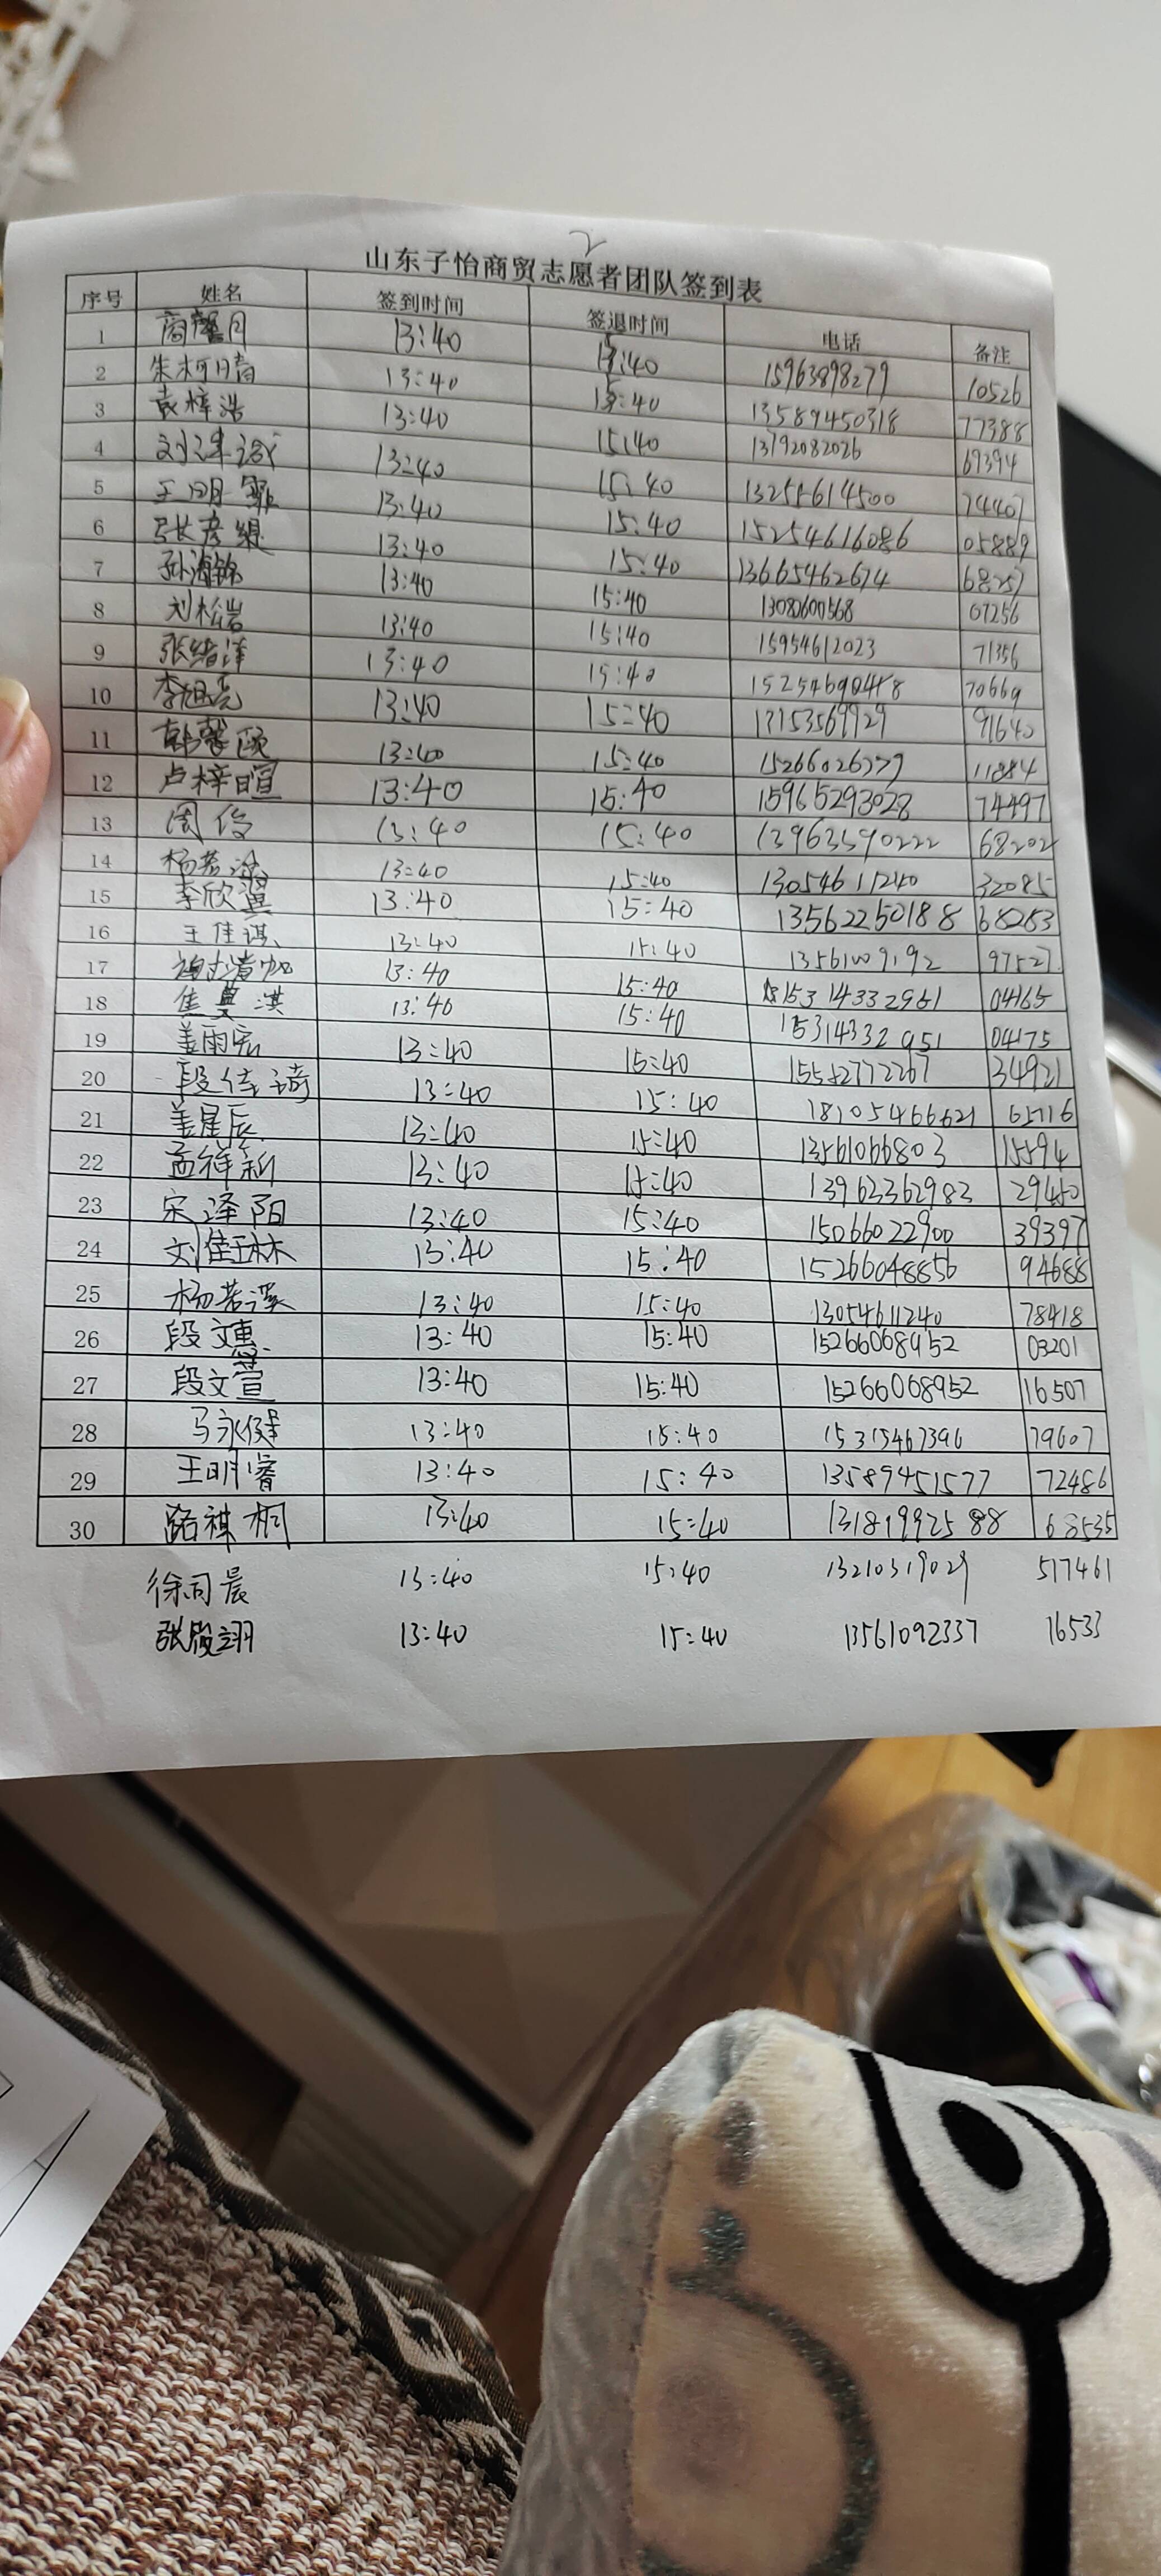 2
山东子怡商贸志愿者团队签到表
序号 姓名 签到时间 签退时间 电话 备注
1 商馨月 13:40 15:40 15963898279 10526
2 朱柯晴 13:40 15:40 13589450318 77388
3 袁梓浩 13:40 15:40 13792082026 69394
4 刘泽诚 13:40 15:40 13255614500 74407
5 王明 13:40 15:40 15254616086 05889
6 张彦缇 13:40 15:40 13665462674 68257
7 孙海锦 13:40 15:40 13082600568 07256
8 刘松岩 13:40 15:40 15954612023 71356
9 张绪洋 13:40 15:40 70669
10 李旭亮 13:40 15:40 17153569929 91640
11 韩馨颐 13:40 15:40 15266026779 11884
12 卢梓暄 13:40 15:40 15965293028 74497
13 周俊 13:40 15:40 13963590222 68202
14 杨若 13:40 15:40 13054611240 32085
15 李欣 13:40 15:40 13562250188 68263
16 王佳琪 13:40 15:40 13561009192 97527
17 13:40 15:40 15314332951 04165
18 焦曼淇 13:40 15:40 15314332951 04175
19 姜雨宏 13:40 15:40 15552772267 34921
20 段佳琦 13:40 15:40 18105466621 65116
21 姜星辰 13:40 15:40 13561066803 15594
22 孟祥新 13:40 15:40 13963362983 29450
23 宋泽阳 13:40 15:40 15066022900 39397
24 刘佳琳 13:40 15:40 15266048856 94688
25 杨若溪 13:40 15:40 13054611240 78418
26 段文惠 13:40 15:40 15266068952 03201
27 段文萱 13:40 15:40 15266068952 16507
28 马永健 13:40 15:40 15315467396 79607
29 王明睿 13:40 15:40 13589451577 72486
30 路祺桐 13:40 15:40 13181992588 68535
徐同晨 13:40 15:40 13210319029 517461
张殷翊 13:40 15:40 13561092337 16533